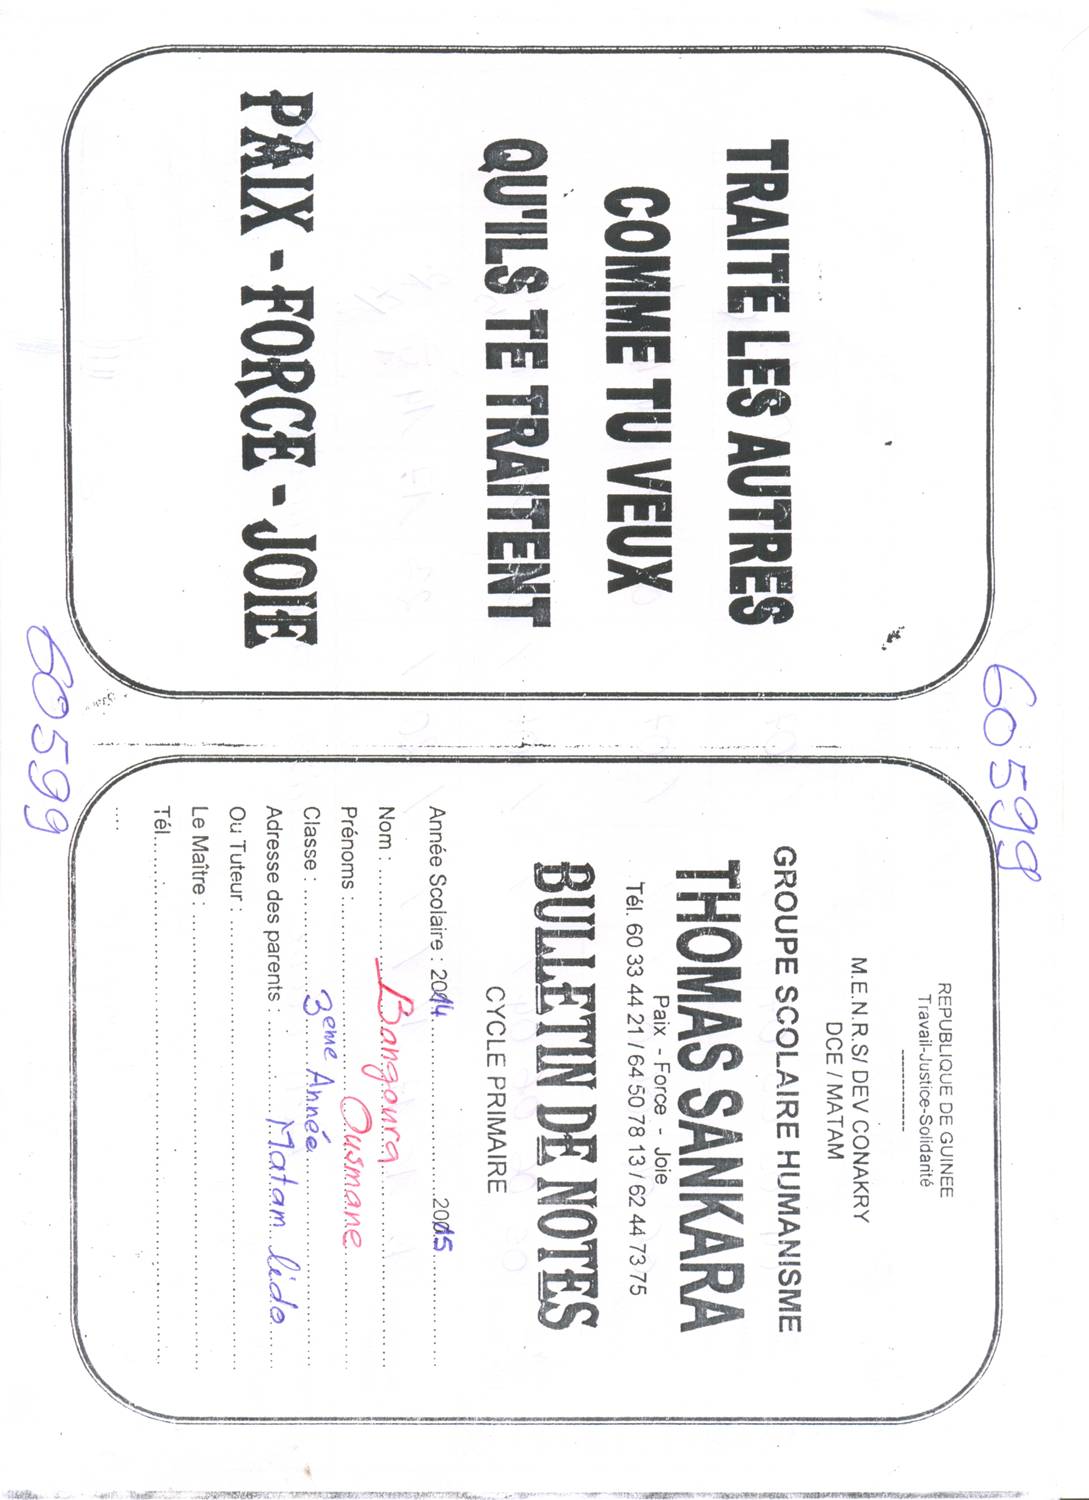 TRAITE LES AUTRES
COMME TU VEUX
QU'ILS TE TRAITENT
PAIX - FORCE - JOIE
60599
60599
REPUBLIQUE DE GUINEE
Travail-Justice-Solidarité
----------------
M.E.N.R.S/ DEV CONAKRY
DCE / MATAM
GROUPE SCOLAIRE HUMANISME
THOMAS SANKARA
Paix - Force - Joie
Tél. 60 33 44 21 / 64 50 78 13 / 62 44 73 75
BULLETIN DE NOTES
CYCLE PRIMAIRE
Année Scolaire : 2014 ............ 2015
Nom : ............ Bangoura
Prénoms : ............ Ousmane
Classe : ............ 3eme Année
Adresse des parents : ............ Matam lido
Ou Tuteur : ............
Le Maître : ............
Tél. ............